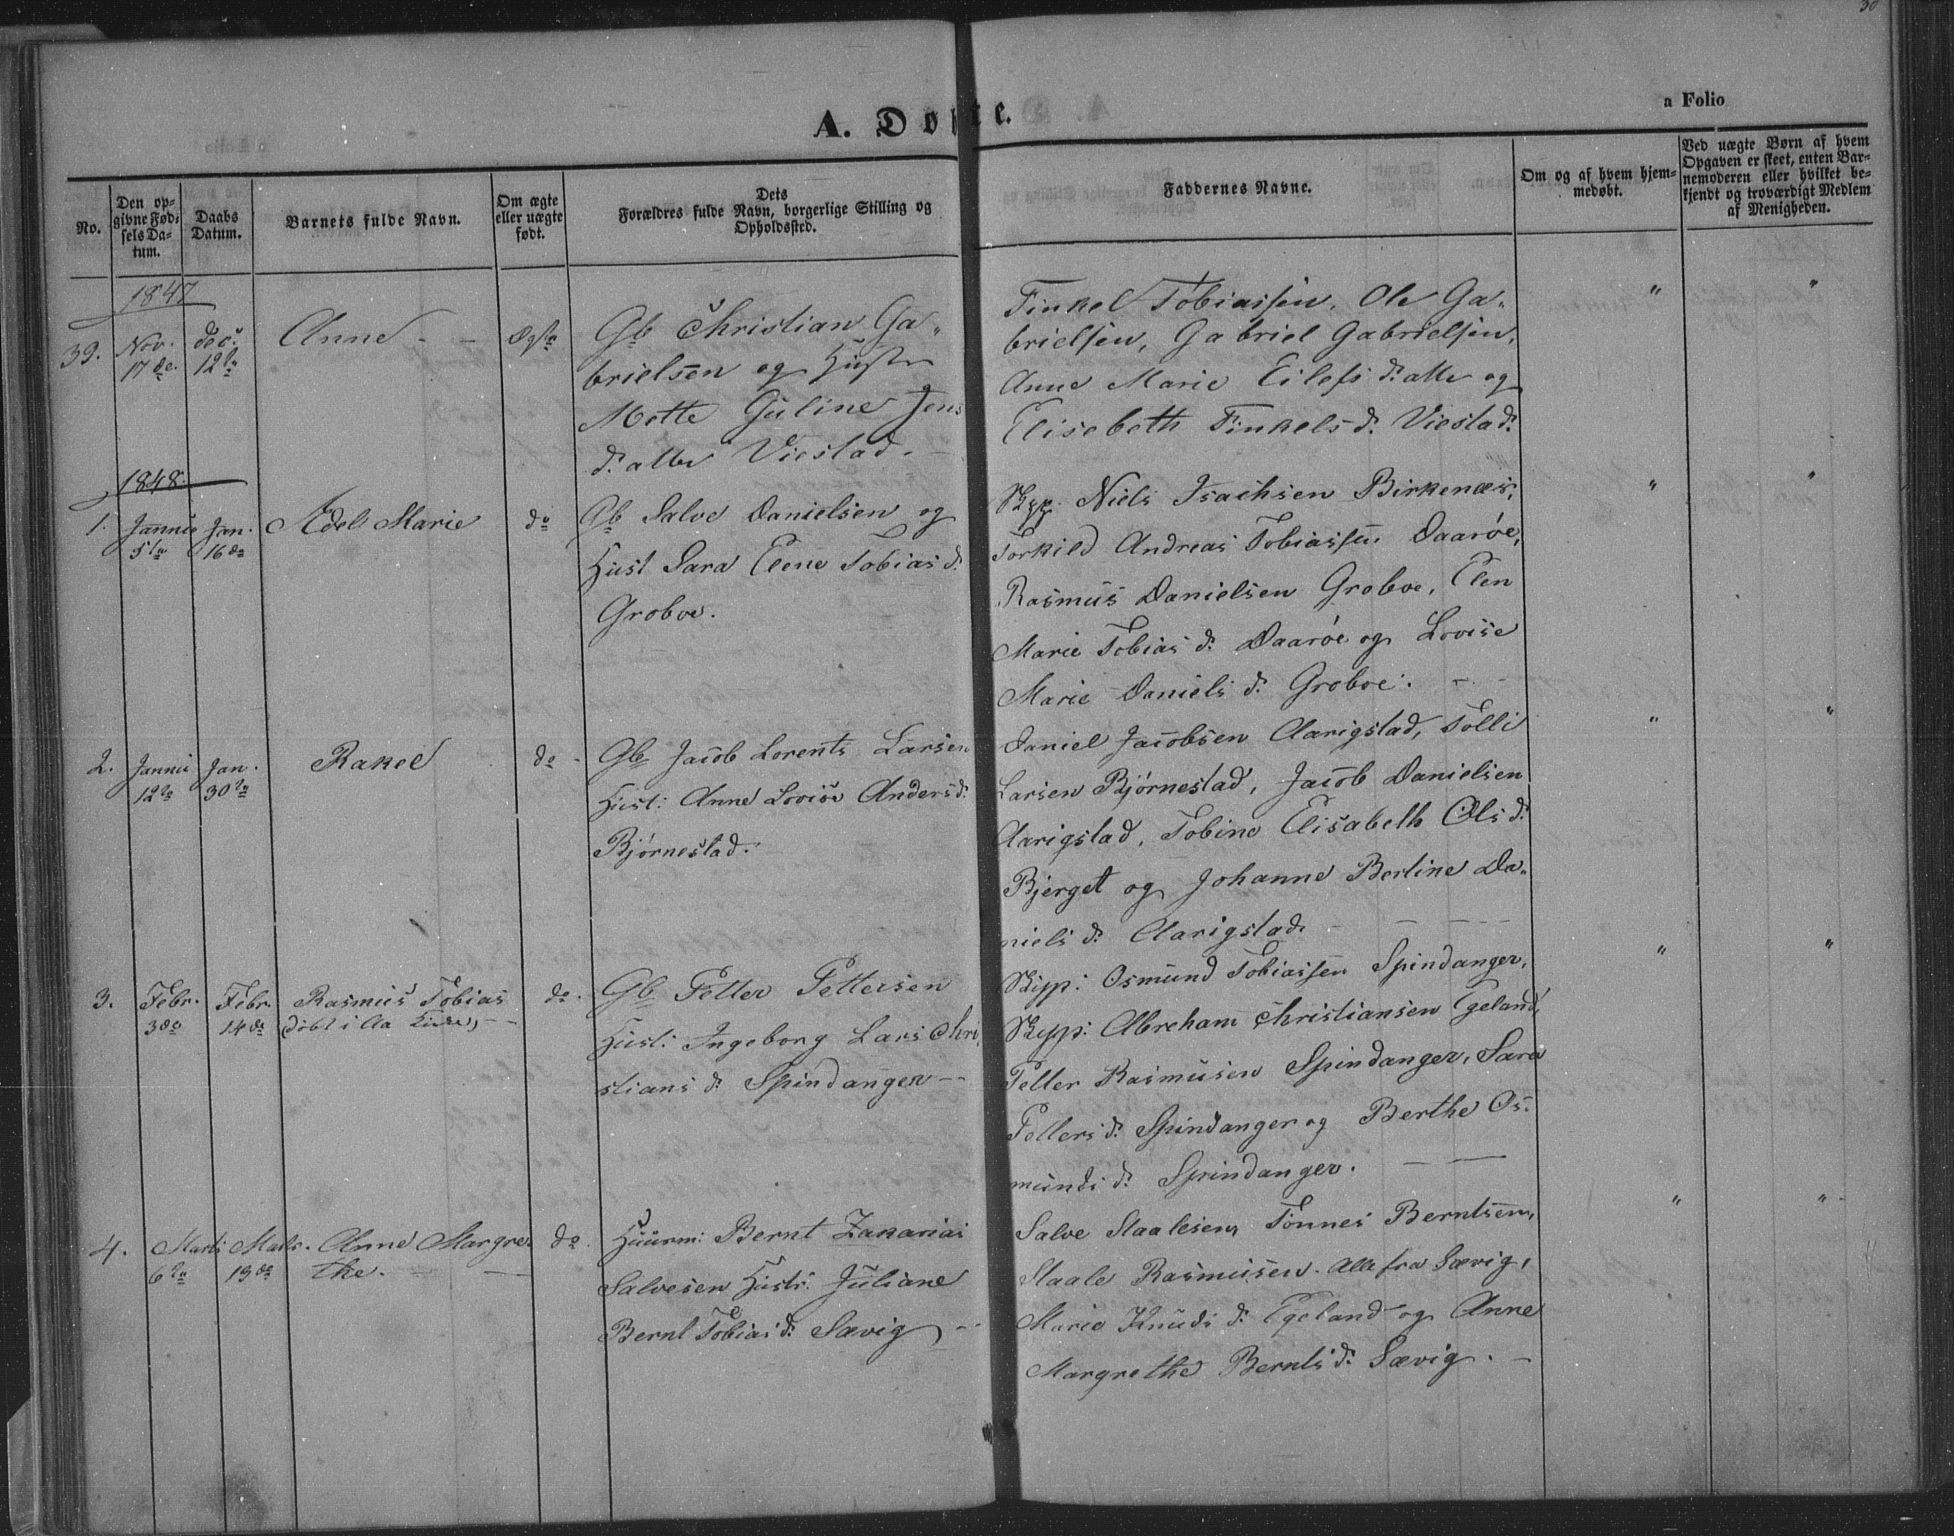 30
A. Døbte.
a Folio
No.
Den op-
givne Fød-
sels Da-
tum.
Daabs
Datum.
Barnets fulde Navn.
Om ægte
eller uægte
født.
Dets
Forældres fulde Navn, borgerlige Stilling og
Opholdssted.
Faddernes Navne.
Om og af hvem hjem-
medøbt.
Ved uægte Børn af hvem
Opgaven er skeet, enten Bar-
nemoderen eller hvilket be-
kjendt og troværdigt Medlem
af Menigheden.
1847
39. Nov. 17de. dec. 12te Anne - - Ægte
Gb Christian Ga-
brielsen og Hustr
Mette Guline Jens
d:atter Viestad. -
Finkel Tobiassen, Ole Ga-
brielsen, Gabriel Gabrielsen,
Anne Marie Eilefs d:atter og
Elisebeth Finkels d: Viestad:
" "
1848.
1. Januar 5te Jan. 16de Adel Marie do
Gb Salve Danielsen og
Hust Sara Elene Tobias d:
Groboe.
Skpp: Niels Isachsen Birkenæs,
Torkild Andreas Tobiassen Daarøe,
Rasmus Danielsen Groboe, Elen
Marie Tobias d: Daarøe og Lovise
Marie Daniels d: Groboe. - -
" "
2. Januar 12te Jan. 30te Rakel do -
Gb Jacob Lorents Larsen
Hust: Anne Lovise Anders d:
Bjørnestad.
Daniel Jacobsen Aarigstad, Tolli
Larsen Bjørnestad, Jacob Danielsen
Aarigstad, Tobine Elisabeth Ols d:
Bjerget og Johanne Bertine Da-
niels d: Aarigstad. - - -
" "
3. Febr. 3de Febr. 14de Rasmus Tobias
(døbt i Aa Kirke) - - do.
Gb Petter Pettersen
Hust: Ingeborg Lars Chri
stians d: Spindanger - -
Skpp: Osmund Tobiassen Spindanger,
Skpp: Abreham Christiansen Egeland,
Petter Rasmusen Spindanger, Sara
Petters d: Spindanger og Berthe Os-
munds d: Spindanger. - -
" "
4. Marts 6te Marts. 19de Anne Margre
the. - - do.
Huurm: Bernt Zakarias
Salvesen Hustr: Juliane
Bernt Tobias d: Sævig - -
Salve Staalesen, Tønnes Berntsen,
Staale Rasmusen. Alle fra Sævig,
Marie Knuds d: Egeland og Anne
Margrethe Bernts d: Sævig. -
" "